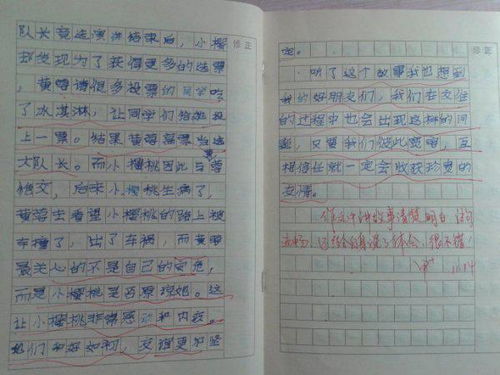 队长竞选演讲结束后，小樱
却发现为了获得更多的选票
，黄蓉请很多投票的同学吃
了冰淇淋，让同学们给她投
上一票。结果黄蓉高票当选
大队长。而小樱桃因此与黄
绝交，后来小樱桃生病了，
黄蓉去看望小樱桃的路上被
车撞了，出了车祸，而黄蓉
最关心的不是自己的安危，
而是小樱桃是否原谅她。这
让小樱桃非常感动和内疚。
她们和好如初，友谊更加坚
修正
听了这个故事我也想到
我的好朋友们，我们在交往
的过程中也会出现这样的问
题，只要我们彼此宽容，互
相信任就一定会收获珍贵的
友情。
作文中讲故事清楚明白
体会，很不错！
修正